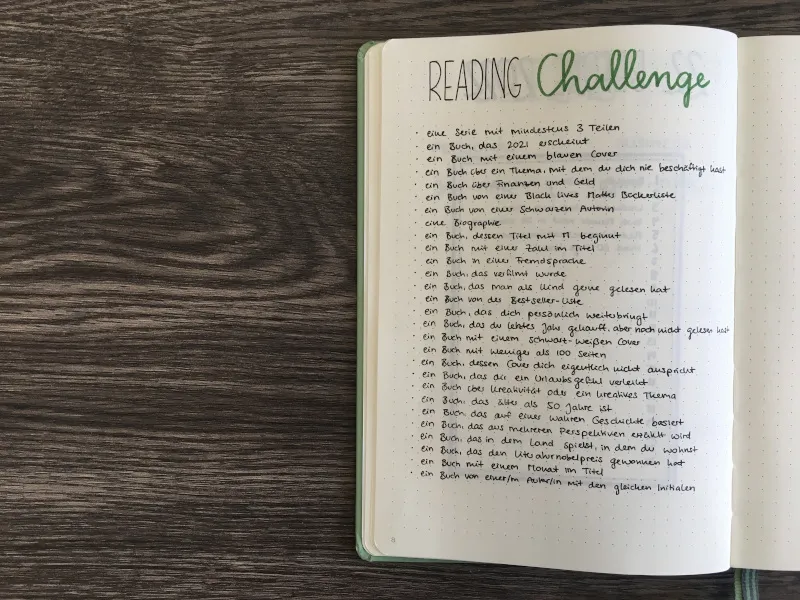 READING Challenge
· eine Serie mit mindestens 3 Teilen
· ein Buch, das 2021 erscheint
· ein Buch mit einem blauen Cover
· ein Buch über ein Thema, mit dem du dich nie beschäftigt hast
· ein Buch über Finanzen und Geld
· ein Buch von einer Black Lives Matter Bücherliste
· ein Buch von einer Schwarzen Autorin
· eine Biographie
· ein Buch, dessen Titel mit M beginnt
· ein Buch mit einer Zahl im Titel
· ein Buch in einer Fremdsprache
· ein Buch, das verfilmt wurde
· ein Buch, das man als Kind gerne gelesen hat
· ein Buch von der Bestseller-Liste
· ein Buch, das dich persönlich weiterbringt
· ein Buch, das du letztes Jahr gekauft, aber noch nicht gelesen hast
· ein Buch mit einem schwarz-weißen Cover
· ein Buch mit weniger als 100 Seiten
· ein Buch, dessen Cover dich eigentlich nicht anspricht
· ein Buch, das dir ein Urlaubsgefühl verleiht
· ein Buch über Kreativität oder ein kreatives Thema
· ein Buch, das älter als 50 Jahre ist
· ein Buch, das auf einer wahren Geschichte basiert
· ein Buch, das aus mehreren Perspektiven erzählt wird
· ein Buch, das in dem Land spielt, in dem du wohnst
· ein Buch, das den Literaturnobelpreis gewonnen hat
· ein Buch mit einem Monat im Titel
· ein Buch von einer/m Autor/in mit den gleichen Initialen